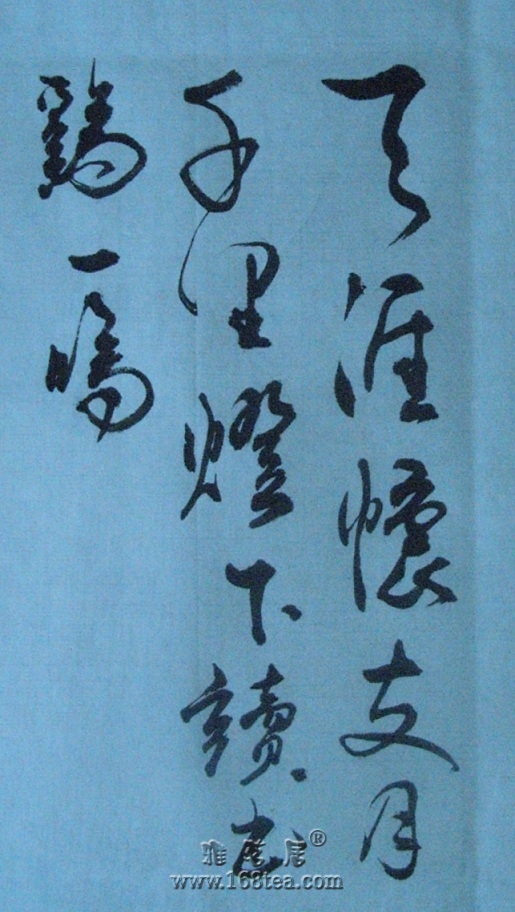 天涯懷友月
千里燈下讀書
鷄一鳴
www.168tea.com